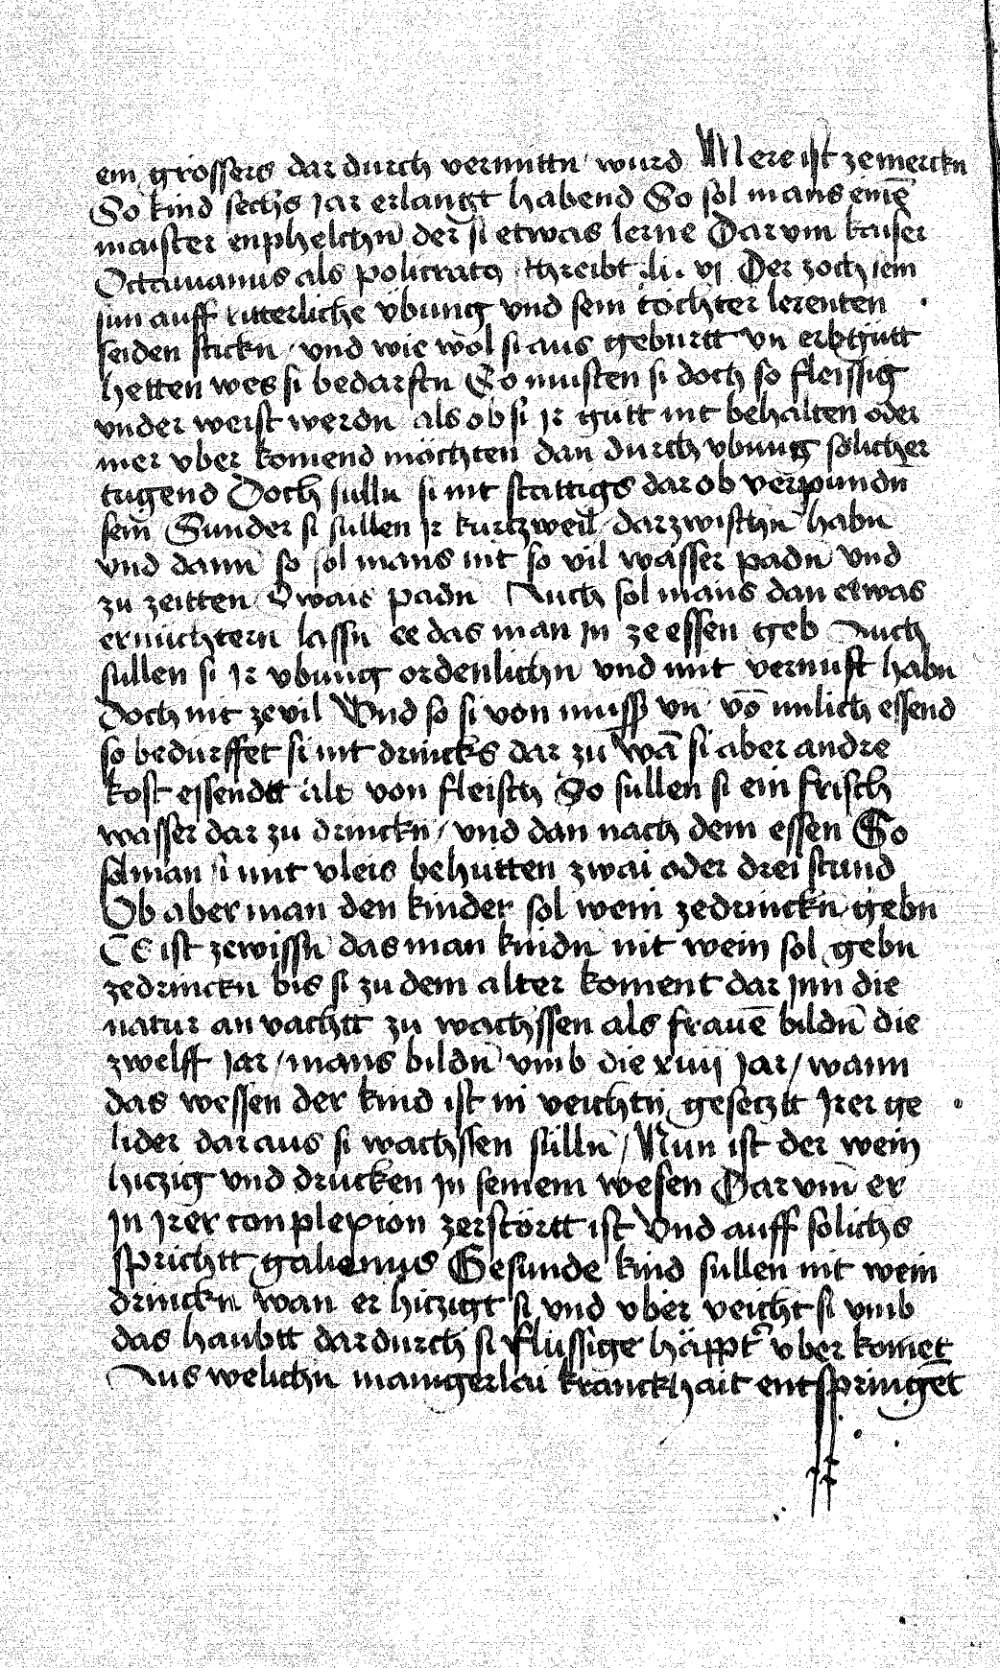 ein grossers dar durch vermittn / wurd Mere ist zemerckn
So kind sechs jar erlangt habend So sol mans einē
maister enphelchn̄ der si etwas lerne Dar vm kaiser
Octauianus als policratꝯ schreibt .li. vj Der zoch sein
sun auff ritterliche v̈bung vnd sein tochter lerenten
seiden stickn / vnd wie wol si aus geburtt vn̄ erbgutt
hetten wes si bedarftn So musten si doch so fleissig
vnder weist werdn als ob si jr gutt nit behalten oder
mer vber komend möchten dan durch vbung sölicher
tugend Doch sulln si nit stättigs dar ob verpundn
sein Sunder si sullen jr kurtzweil dar zwischn̄ habn
vnd dann so sol mans nit so vil wasser padn vnd
zu zeitten Swais padn Auch sol mans dan etwas
ernüchtern lassn ee das man jn ze essen geb Auch
sullen si jr vbung ordenlichn vnd mit vernuft habn
doch nit ze vil Vnd so si von muss vn̄ vō milich essend
so bedürffet si nit drincks dar zu wā si aber andre
kost essendtt als von fleisch So sullen si ein frisch
wasser dar zu drinckn / vnd dan nach dem essen So
sol man si mit vleis behütten zwai oder drei stund
Ob aber man den kinder sol wein zedrinckn gebn
Es ist zewissn̄ das man kindn nit wein sol gebn
zedrinckn bis si zu dem alter koment dar jnn die
natur an vachtt zu wachssen als frauē bildn̄ die
zwelff jar / mans bildn̄ vmb die xiiij jar / wann
das wessen der kind ist in veichtn gesetztt jrer ge
lider dar aus si wachssen sülln / Nun ist der wein
hiczig vnd drucken jn seinem wesen Dar vm̄ er
jn jrer conplexion zerstörtt ist Vnd auff solichs
sprichtt galienus Gesunde kind sullen nit wein
drinckn wan er hiczigt si vnd vber veicht si vmb
das haubtt dar durch si flüssige häppt͛ vber komet
Aus welichn manigerlai kranckhait entspringēt